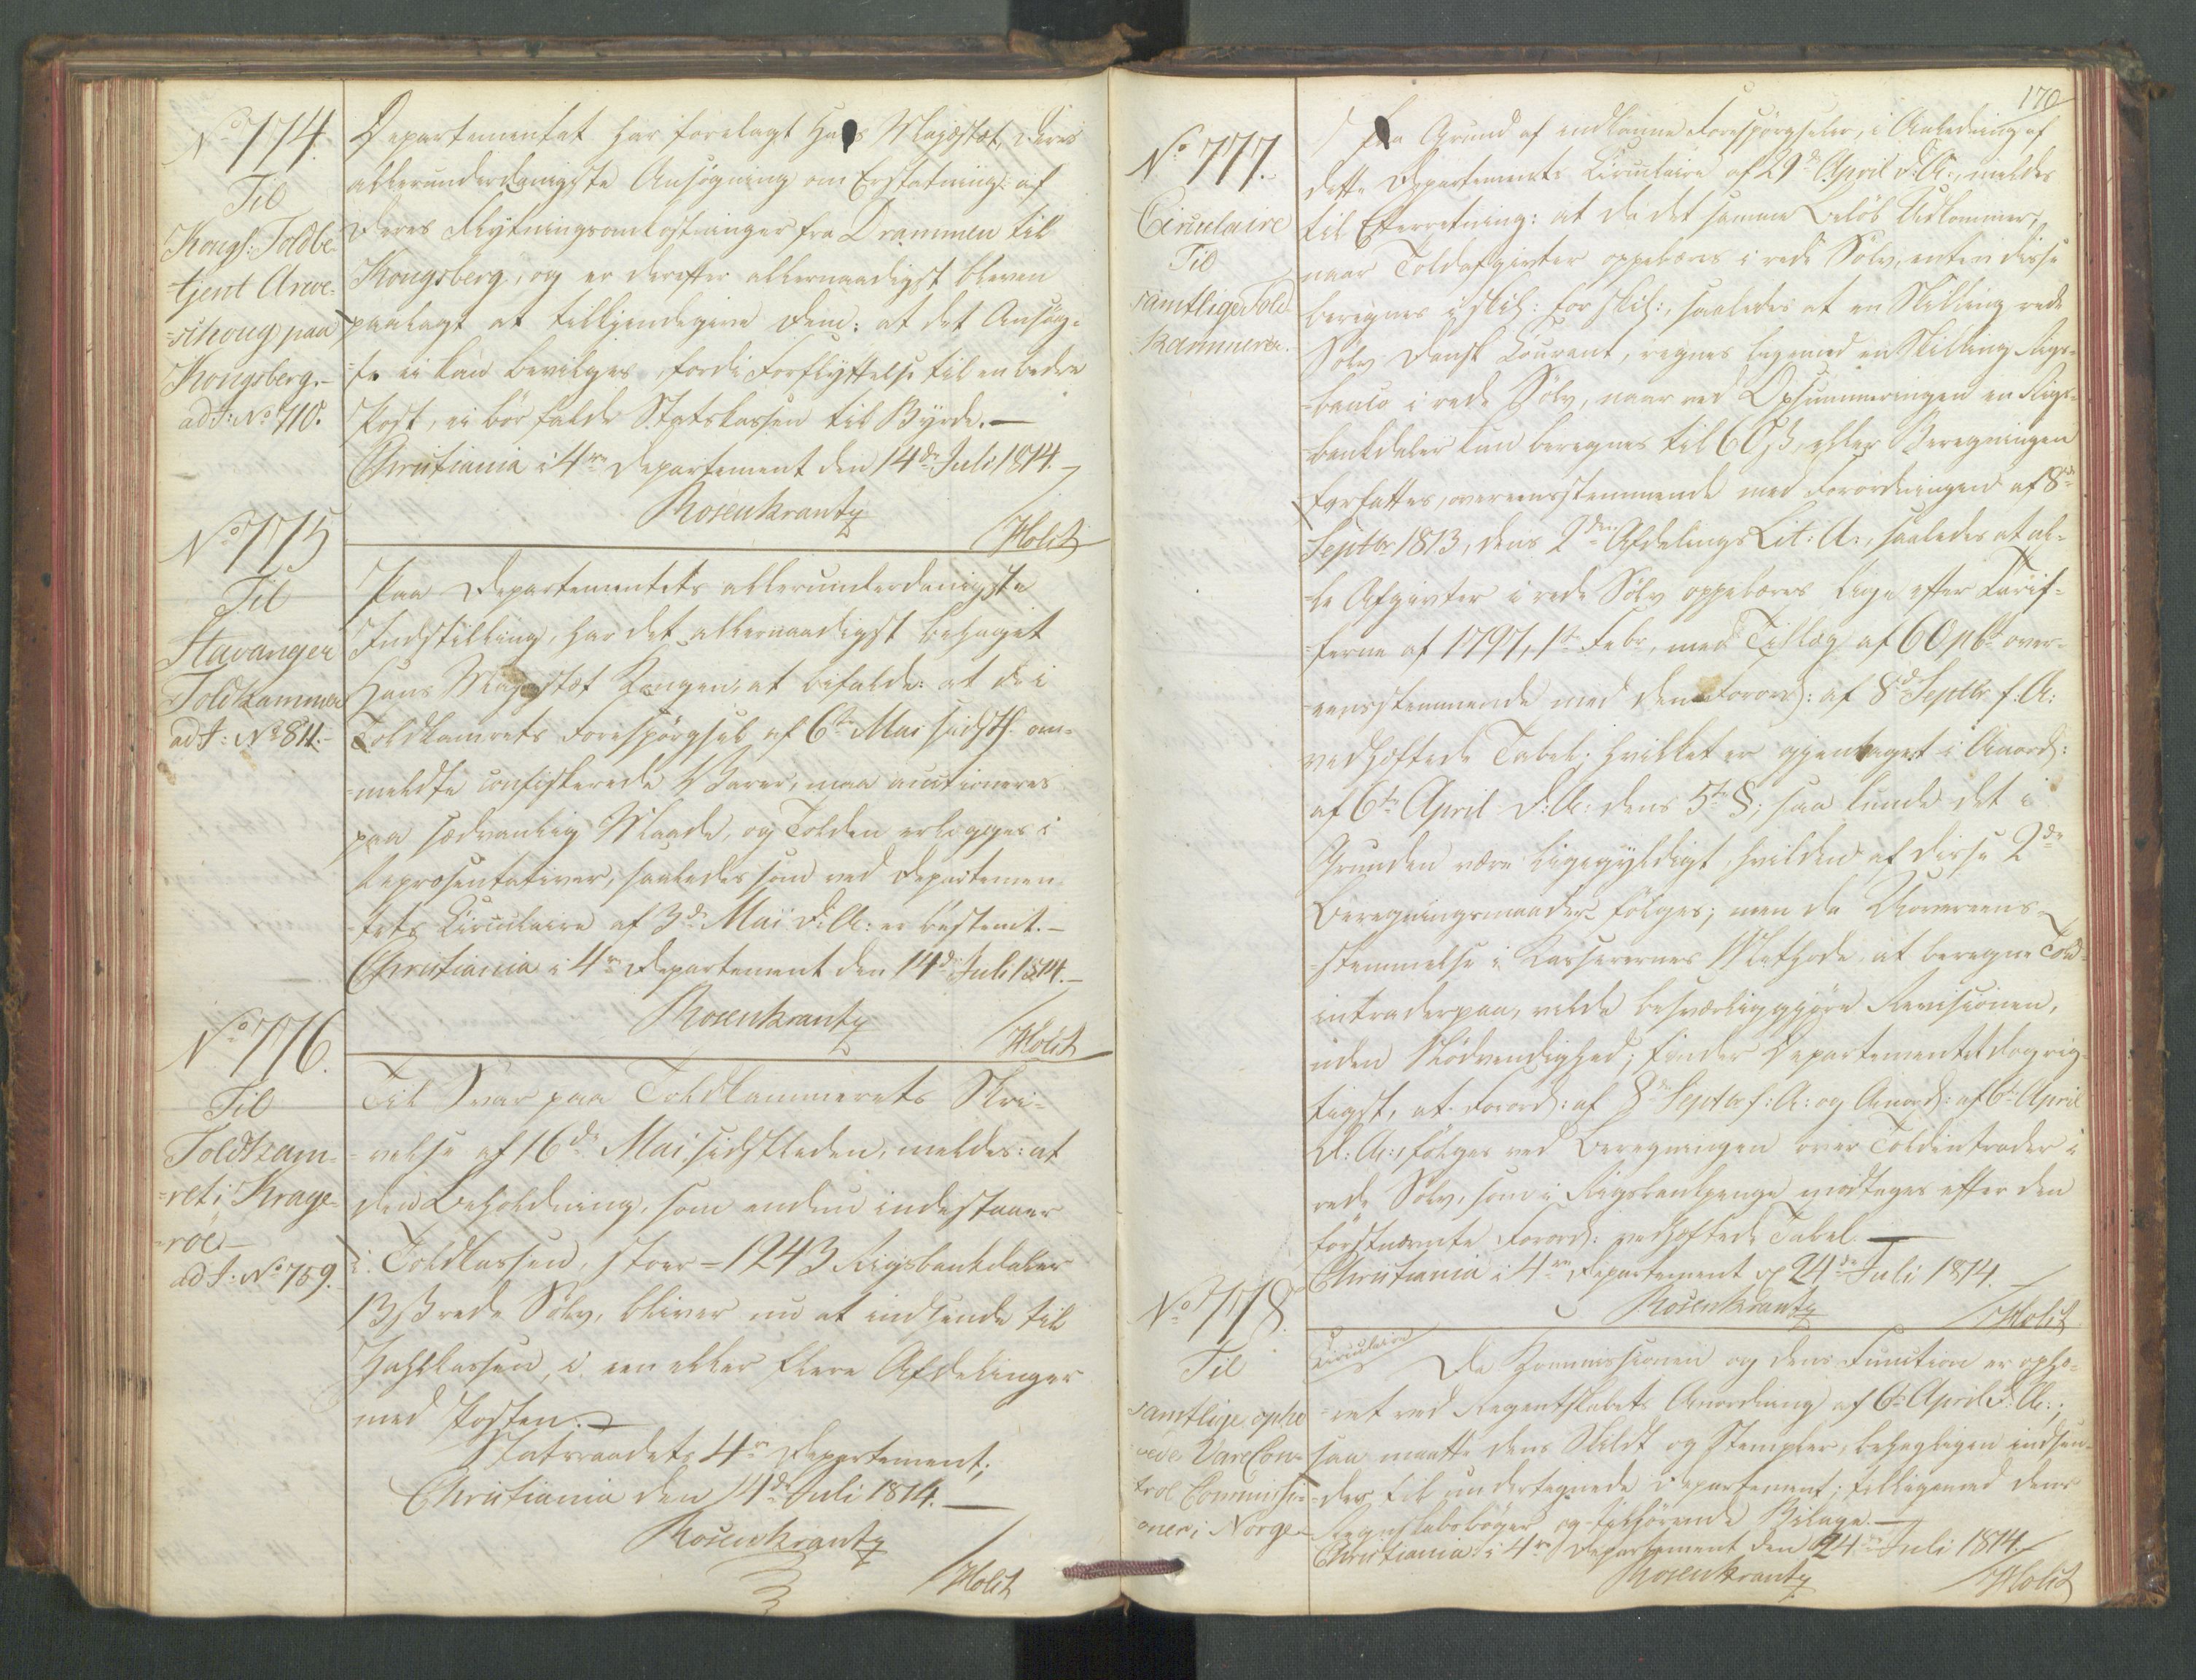 No 774.
Til
Kongs: Toldbe-
tjent Arve-
-schoug paa
Kongsberg.-
ad J: No 710.
Departementet har forelagt Hans Majestæt, Deres
allerunderdanigste Ansøgning om Erstatning af
Deres Flytningsomkostninger fra Drammen til
Kongsberg, og er derefter allernaadigst bleven
paalagt at tilkjendegive Dem: at det Ansøg-
-te ei kan bevilges, fordi Forflyttelse til en bedre
Post, ei bør falde Statskassen til Byrde. —
Christiania i 4re Departement den 14de Juli 1814. —
Rosenkrantz
/Holst
No 775
Til
Stavanger
Toldkammer
ad J: No 811.-
Paa Departementets allerunderdanigste
Indstilling, har det allernaadigst behaget
Hans Majestæt Kongen, at bifalde: at de i
Toldkamrets Forespørgsel af 6te Mai sidstl. om-
-meldte confiskerede Varer, maa auctioneres
paa sædvanlig Maade, og Tolden erlægges i
Repræsentativer, saaledes som ved Departemen-
-tets Circulaire af 3de Mai d: A: er bestemt. —
Christiania i 4re Departement den 14de Juli 1814. —
Rosenkrantz
/Holst
No 776.
Til
Toldkam-
-ret i Krage-
-röe —
ad J: No 759.
Til Svar paa Toldkammerets Skri-
-velse af 16de Mai sidstleden, meldes: at
den Beholdning, som endnu indestaaer
i Toldkassen, stoer = 1243 Rigsbankdaler
13 ß rede Sølv, bliver nu at indsende til
Zahlkassen, i een eller flere Afdelinger
med Posten. —
Statsraadets 4re Departement;
Christiania den 14de Juli 1814. —
Rosenkrantz
/Holst
170
No 777.
Circulaire
Til
samtlige Told-
kammere.
Paa Grund af indkomne Forespørgseler, i Anledning af
dette Departements Circulaire af 29de April d: A:, meldes
til Efterretning: at da det samme Beløb udkommer,
naar Toldafgivter oppebæres i rede Sølv, enten disse
beregnes i skil: for skil:, saaledes at en Skilling rede
Sølv Dansk Courant, regnes ligemed en Skilling Rigs-
-banco i rede Sølv, naar ved Opsummeringen en Rigs-
-bankdaler kun beregnes til 60 ß, eller Beregningen
forfattes, overeensstemmende med Forordningen af 8de
Septbr 1813, dens 2den Afdelings Lit: A:, saaledes at al-
-le Afgivter i rede Sølv oppebæres lige efter Tarif-
-ferne af 1797, 1te Febr, med Tillæg af 60 pCt over-
-eensstemmende med den Forord: af 8de Septbr f: A:
vedhæftede Tabel; hvilket er gjentaget i Anord:
af 6te April d: A: dens 5te §; saa kunde det i
Grunden være ligegyldigt, hvilken af disse 2de
Beregningsmaader følges; men da Uovereens-
-stemmelse i Kassererenes Methode, at beregne Told-
intrader paa, vilde besværliggjøre Revisionen,
uden Nødvendighed; finder Departementet dog rig-
tigst, at Forord: af 8de Septbr f: A: og Anord: af 6te April
d: A:, følges ved Beregningen over Toldintrader i
rede Sølv, som i Rigsbankpenge modtages efter den
førstnævnte Forord: vedhæftede Tabel. —
Christiania i 4re Departement d 24de Juli 1814. —
Rosenkrantz
/Holst
No 778.
Til
samtlige ophæ-
vede VareCon-
trol Commissi-
oner i Norge-
Circulaire
Da Kommissionen og dens Function er ophæ-
-vet ved Regentskabets Anordning af 6te April d: A:;
saa maatte dens Skildt og Stempler, behageligen indsen-
-des til undertegnede Departement; tilligemed dens
Regnskabsbøger og tilhørende Bilage. —
Christiania i 4re Departement den 24de Juli 1814. —
Rosenkrantz
/Holst